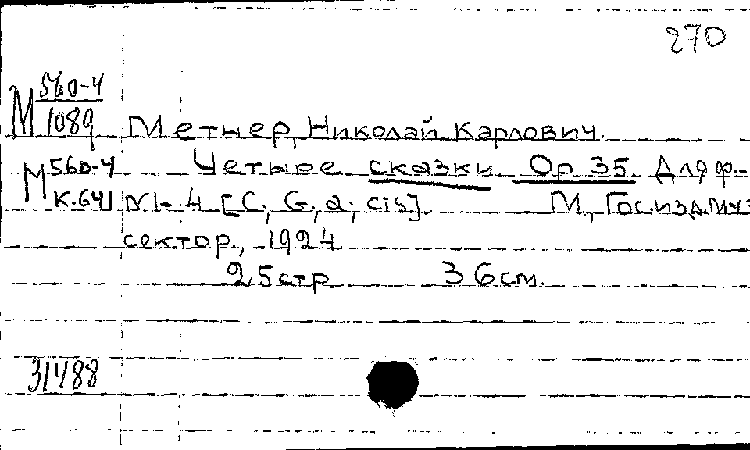 270
М 560-4
1089
Метнер, Николай Карлович.
М 560-4
К-641
Четыре сказки Op 35. Для ф-
N1-4 [C; G; a; cis]. М., Гос. изд. муз
сектор, 1924
25 стр 36 см.
31488